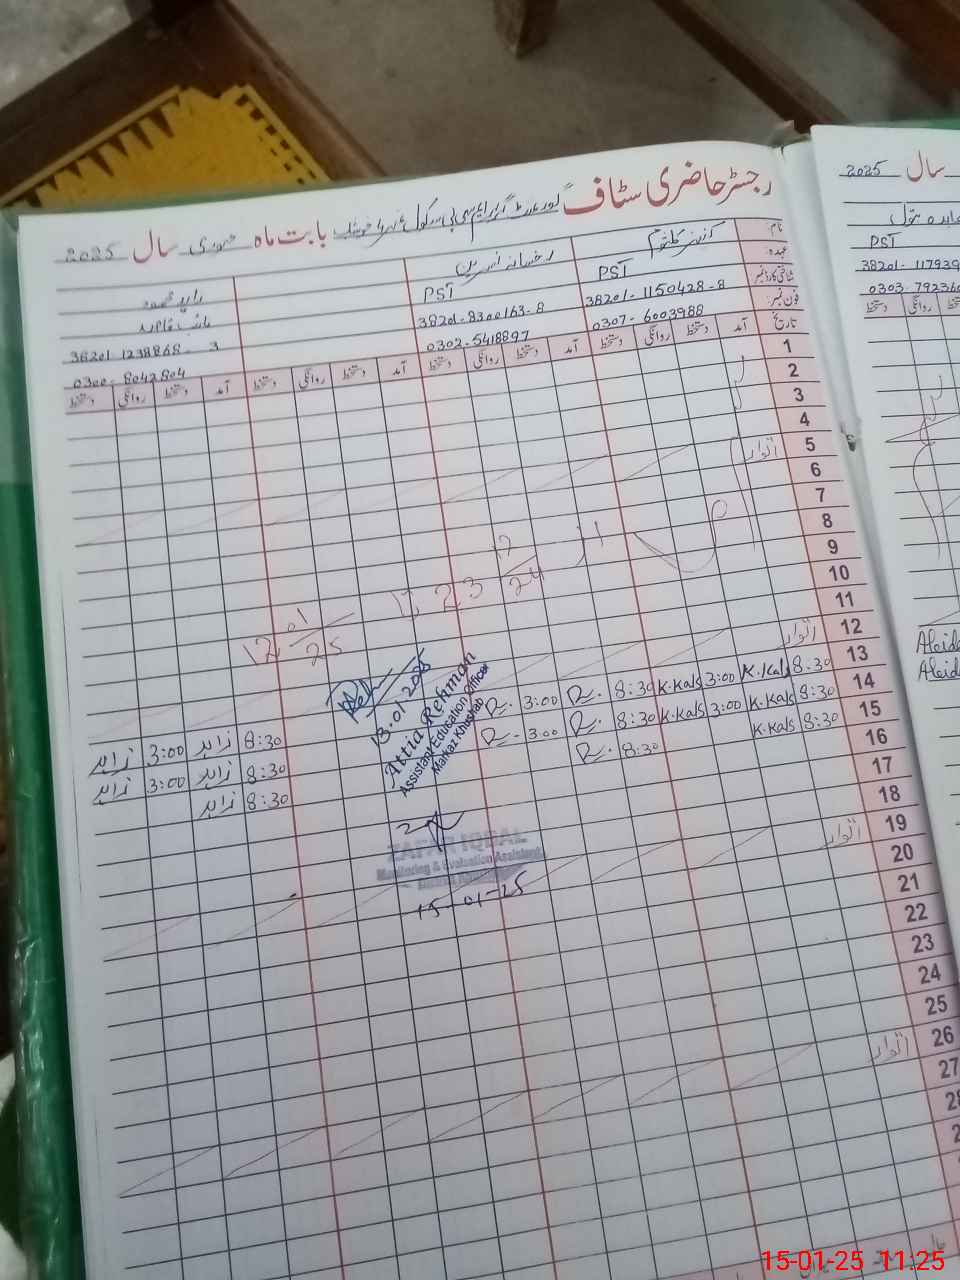 رجسٹر حاضری سٹاف گورنمنٹ بابت ماہ جنوری سال 2025
سال 2025
نام:
عہدہ:
شناختی کارڈ نمبر
فون نمبر:
تاریخ
کنیز کلثوم
PST
38201-1150428-8
0307-6003988
رخسانہ نسرین
PST
38201-8300163-8
0302-5418897
زاہد محمود
نائب قاصد
38201-1238868-3
0300-8042804
PST
38201-117939
0303-792360
آمد دستخط روانگی دستخط آمد دستخط روانگی دستخط آمد دستخط روانگی دستخط آمد دستخط روانگی دستخط
1
2
3
4
5 اتوار
6
7
8
9
10
11
12 اتوار
13 8:30 K.Kals 3:00 K.Kals 8:30 R. 3:00 R. 8:30 زاہد 3:00 زاہد
14 8:30 K.Kals 3:00 K.Kals 8:30 R. 3:00 R. 8:30 زاہد 3:00 زاہد
15 8:30 K.Kals 8:30 R. 8:30 زاہد
16
17
18
19 اتوار
20
21
22
23
24
25
26 اتوار
27
12 01/25 23 12/24
13.01.2025
Attia Rehman
Assistant Education Officer
Markaz Khushab
ZAFAR IQBAL
Monitoring & Evaluation Assistant
15-01-25
15-01-25 11:25